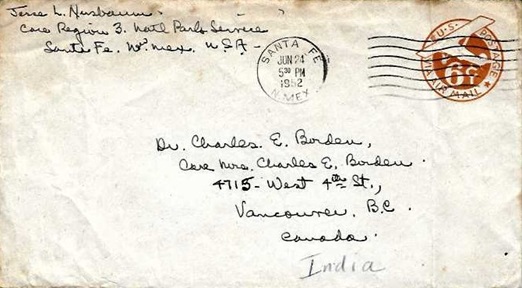 Jesse L. Nusbaum.
Care Region 3. Nat'l Park Service
Santa Fe. N. Mex. U.S.A.
SANTA FE
JUN 24
5 30 PM
1952
N. MEX.
U.S. POSTAGE
6¢
VIA AIR MAIL
Dr. Charles. E. Borden,
Care Mrs. Charles E. Borden.
4715 - West 4th St.,
Vancouver. B.C.
Canada.
India